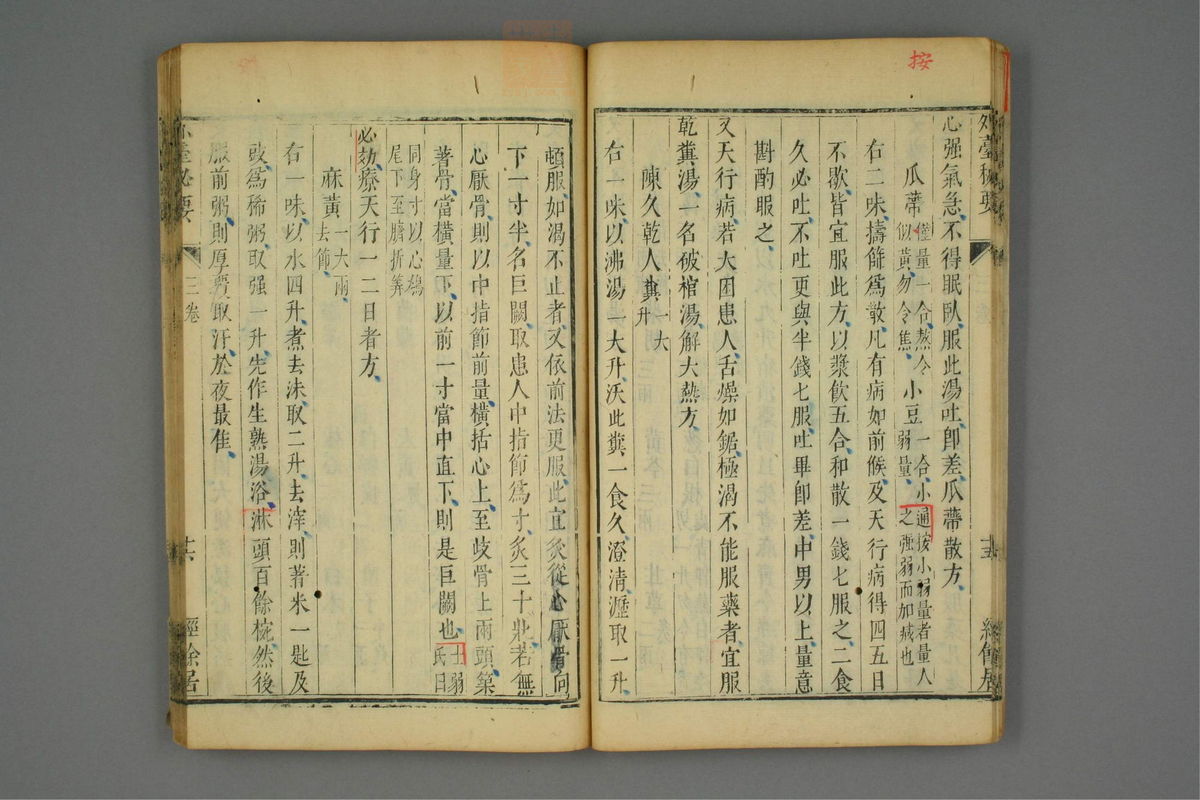 按
外臺秘要
心強氣急不得眠臥服此湯吐卽差瓜蔕散方
瓜蔕 僅量一合熬令
似黃勿令焦 小豆 一合小通按小弱量者量人
弱量 之强弱而加減也
右二味擣篩爲散凡有病如前候及天行病得四五日
不歇皆宜服此方以漿飮五合和散一錢匕服之二食
久必吐不吐更與半錢匕服吐畢卽差中男以上量意
斟酌服之
又天行病若大困患人舌燥如鋸極渴不能服藥者宜服
乾糞湯一名破棺湯解大熱方
陳久乾人糞 一大
升
右一味以沸湯一大升沃此糞一食久澄清瀝取一升
頓服如渴不止者又依前法更服此宜灸從心厭骨向
下一寸半名巨闕取患人中指節爲寸灸三十壯若無
心厭骨則以中指節前量橫括心上至歧骨上兩頭築
著骨當橫量下以前一寸當中直下則是巨闕也 士弱
氏曰
同身寸以心鳩
尾下至臍折筭
必効療天行一二日者方
麻黃 一大兩
去節
右一味以水四升煮去沫取二升去滓則著米一匙及
豉爲稀粥取强一升先作生熟湯浴淋頭百餘椀然後
服前粥則厚覆取汗於夜最佳
外臺秘要
三卷
十六
經餘居